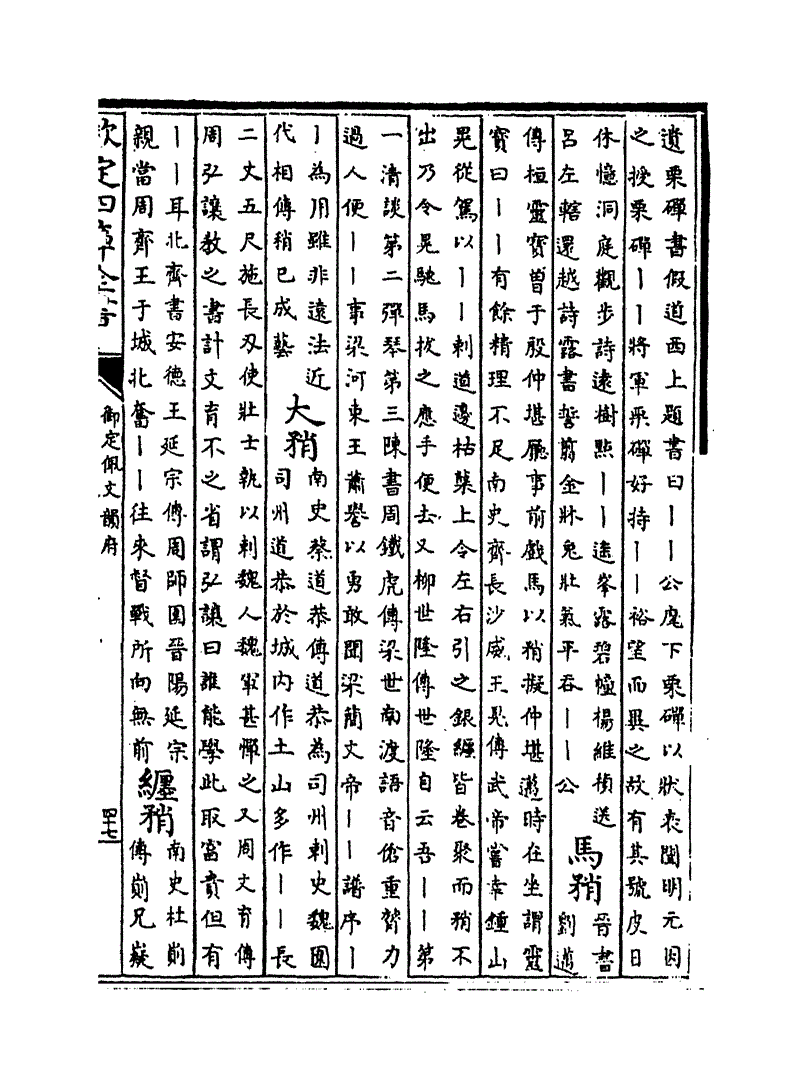 遺栗磾書假道西上題書曰丨丨公麾下栗磾以狀表聞明元因
之授栗磾丨丨將軍栗磾好持丨丨裕望而異之故有其號皮日
休憶洞庭觀步詩遠樹點丨丨遙峯露碧幢楊維楨送
呂左轄還越詩露書誓翦金牀兔壯氣平吞丨丨公
馬矟
晉書
劉邁
傳桓靈寶曾于殷仲堪廳事前戲馬以矟擬仲堪邁時在坐謂靈
寶曰丨丨有餘精理不足南史齊長沙威王晃傳武帝嘗幸鍾山
晃從駕以丨丨刺道邊枯蘖上令左右引之銀纒皆卷聚而矟不
出乃令晃馳馬拔之應手便去又柳世隆傳世隆自云吾丨丨第
一清談第二彈琴第三陳書周鐵虎傳梁世南渡語音傖重膂力
過人便丨丨事梁河東王蕭譽以勇敢聞梁簡文帝丨丨譜序丨
丨為用雖非遠法近
代相傳矟已成藝
大矟
南史蔡道恭傳道恭為司州刺史魏圍
司州道恭於城內作土山多作丨丨長
二丈五尺施長刃使壯士執以刺魏人魏軍甚憚之又周文育傳
周弘讓教之書計文育不之省謂弘讓曰誰能學此取富貴但有
丨丨耳北齊書安德王延宗傳周師圍晉陽延宗
親當周齊王于城北奮丨丨往來督戰所向無前
纒矟
南史杜崱
傳崱兄嶷
欽定四庫全書
御定佩文韻府
四十七